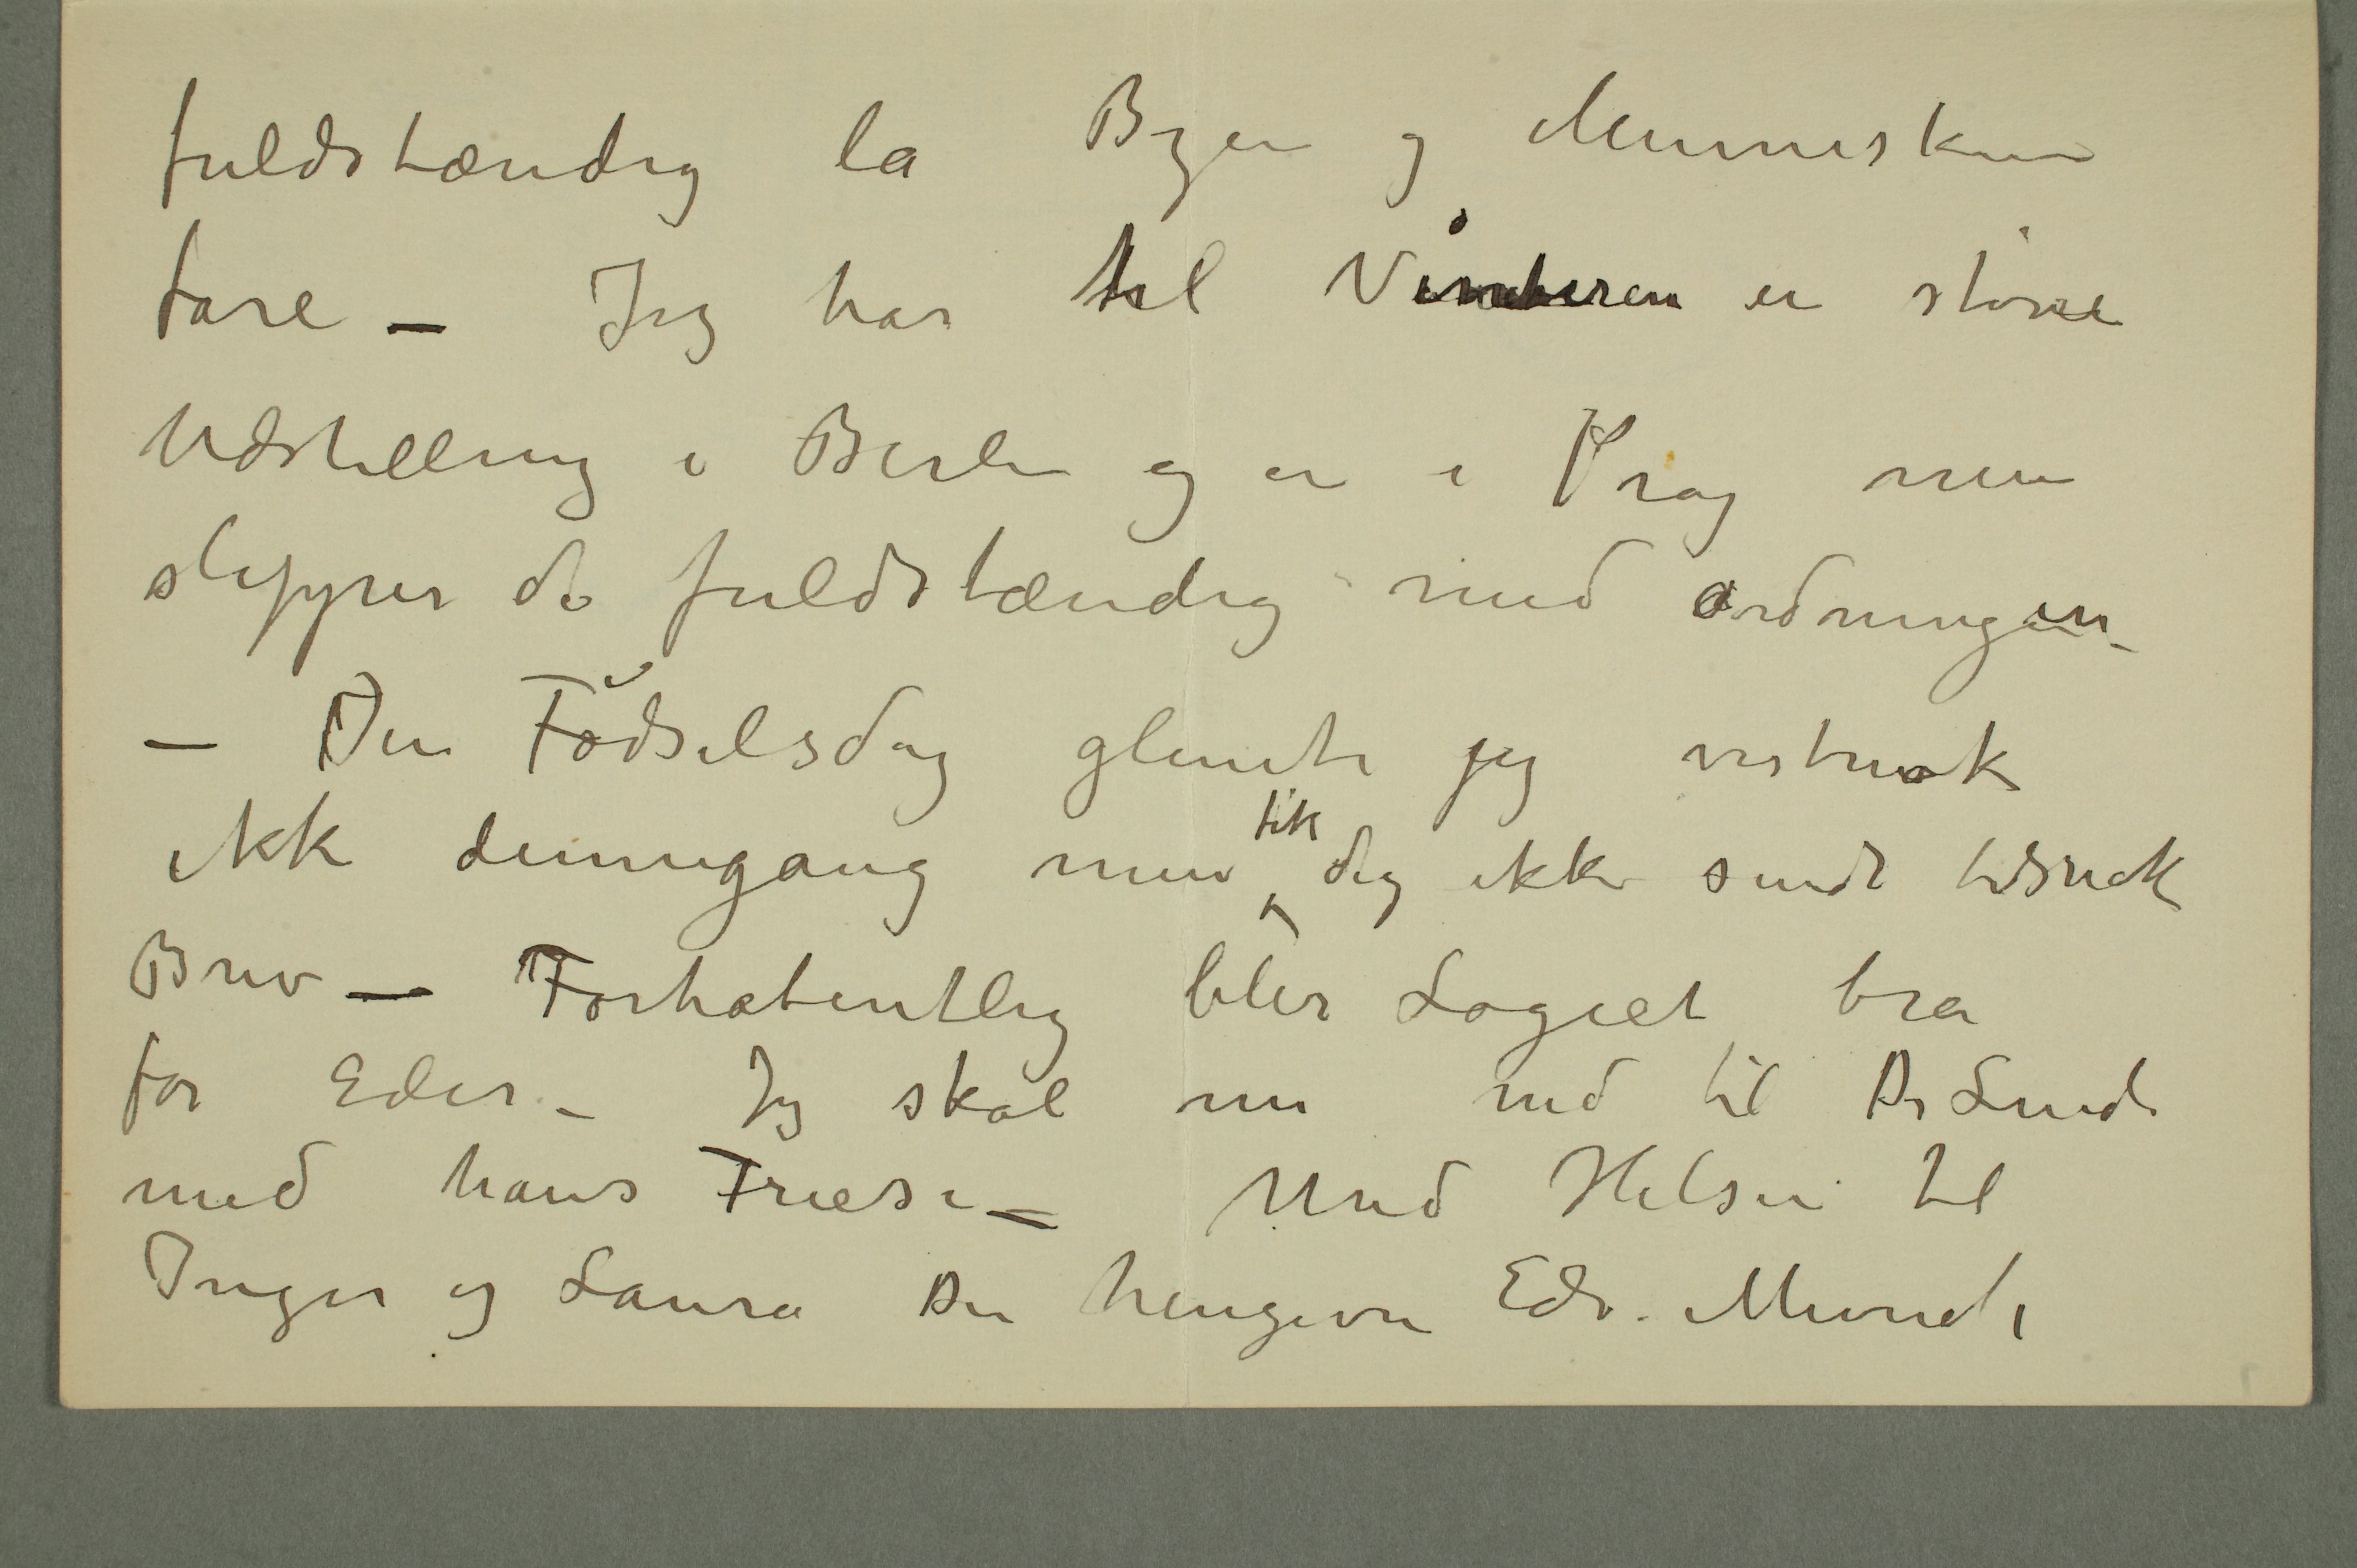 fuldstændig la Byen og Menneskene
fare – Jeg har til Vinteren en større
Udstilling i Berlin og en i Prag men
slipper da fuldstændig med ordningen
– Din Födselsdag glemte jeg vistnok
ikke dennegang men fik dog ikke sendt tidsnok
Brev – Forhabentlig blir Logiet bra
for Eder – Jeg skal nu ned til Dr Linde
med hans Friese – Med Hilsen til
Inger og Laura Din hengivne Edv. Munch